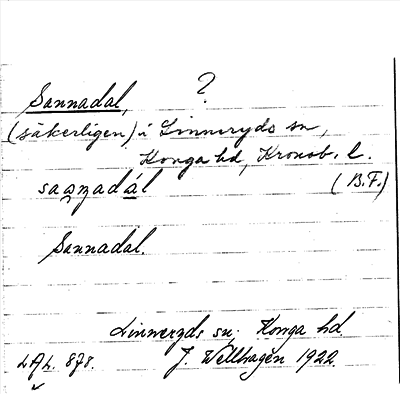 ?
Sannadal,
(säkerligen) i Linneryds sn,
Konga hd, Kronob. l.
saṉnadál (B.F.)
Sannadal.
Linneryds sn. Konga hd.
LAL. 878. J. Wellhagen 1922.